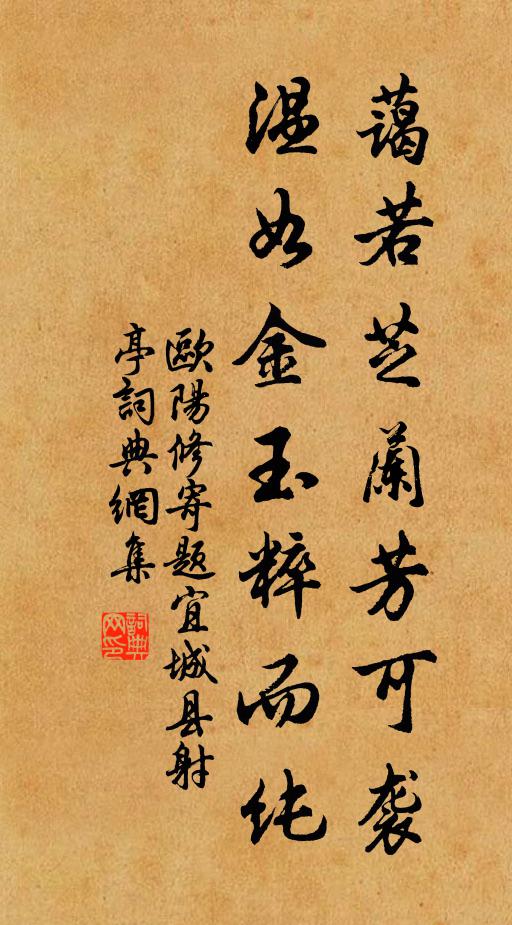 藹若芝蘭芳可袭
温如金玉粹而纯
歐陽修寄题宜城县射
亭詞典網集
詞典
网印